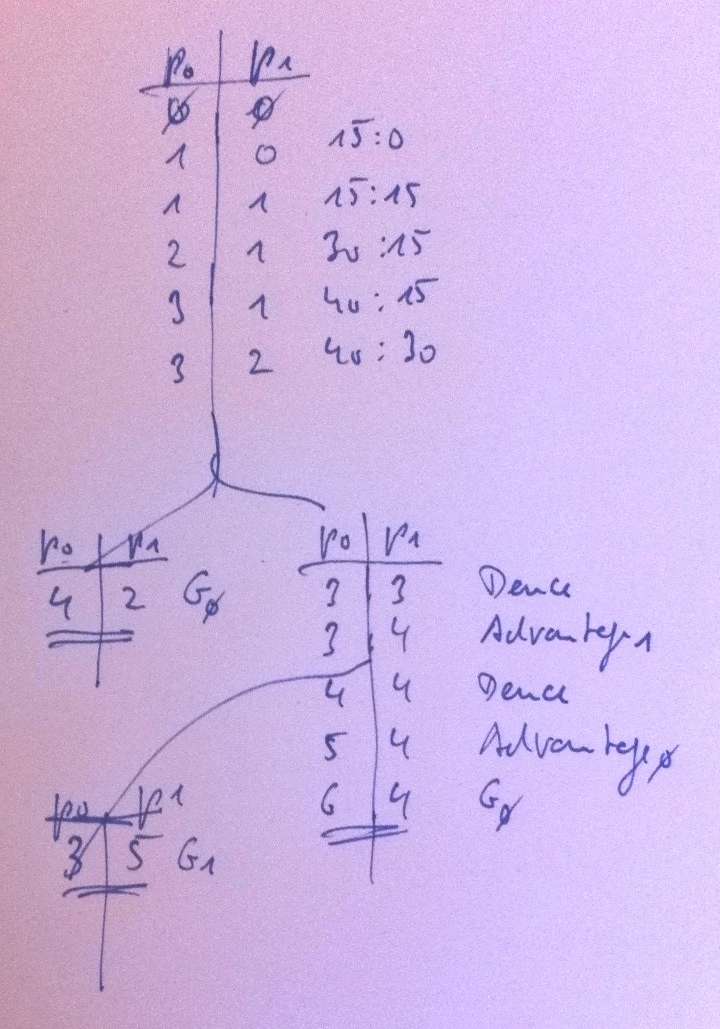 p0 p1
0 0
1 0 15:0
1 1 15:15
2 1 30:15
3 1 40:15
3 2 40:30
p0 p1
4 2 G0
p0 p1
3 3 Deuce
3 4 Advantage 1
4 4 Deuce
5 4 Advantage 0
6 4 G0
p0 p1
3 5 G1